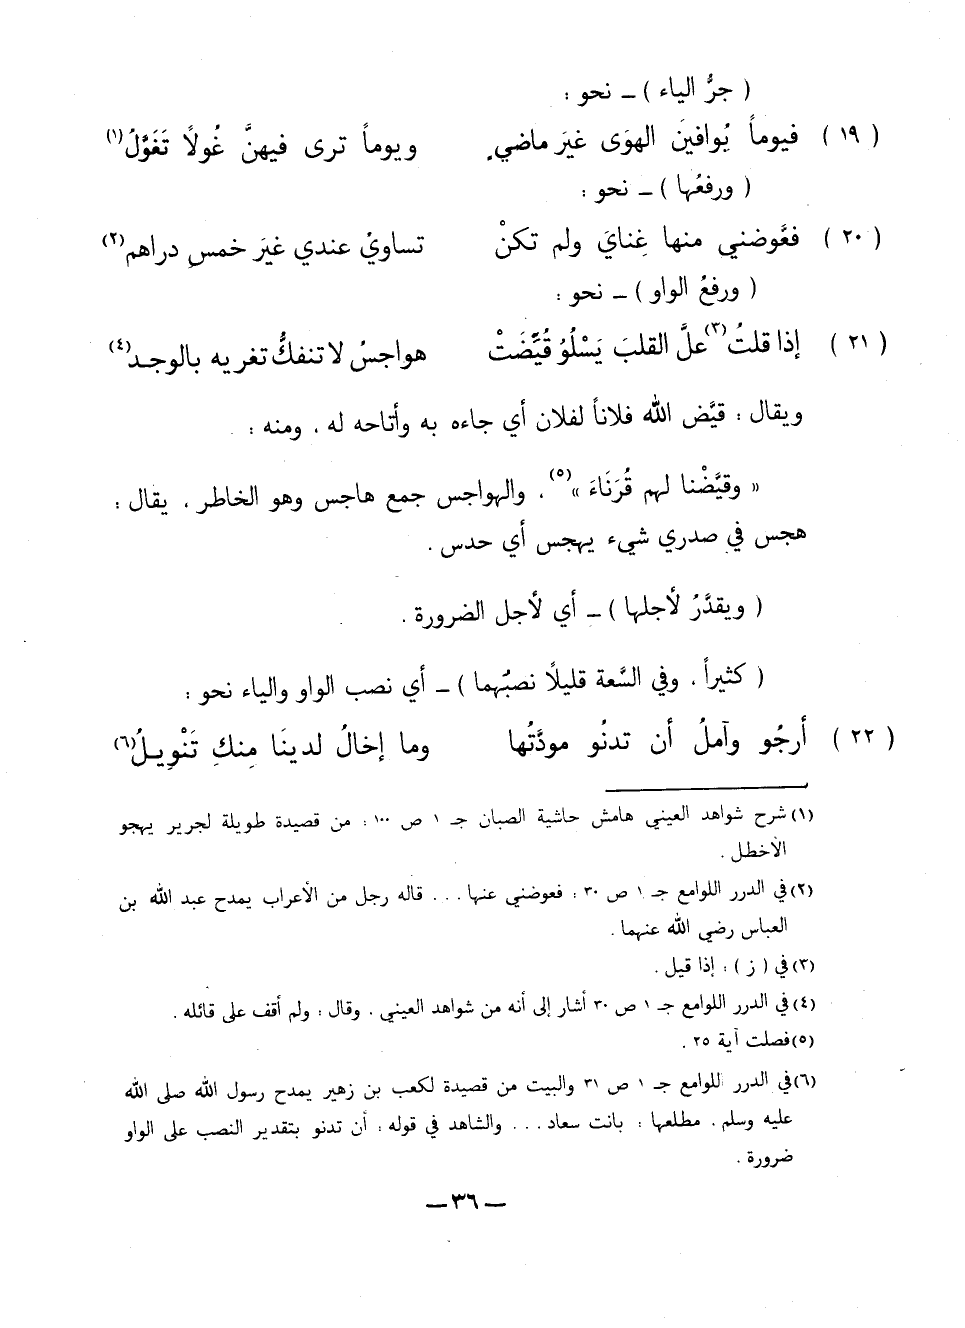 ( جرُّ الياء ) ــ نحو :
( ١٩ ) فيوماً يُوافينَ الهوَى غيرَ ماضيٍ ويوماً ترى فيهنَّ غُولاً تَغَوَّلُ(١)
( ورفعُها ) ــ نحو :
( ٢٠ ) فعَّوضني منها غِنايَ ولم تكنْ تساويُ عندي غيرَ خمسِ دراهم(٢)
( ورفعُ الواو ) ــ نحو :
( ٢١ ) إذا قلتُ(٣) علَّ القلبَ يَسْلُوُ قُيِّضَتْ هواجسُ لا تنفكُّ تغريه بالوجـد(٤)
ويقال : قيَّض الله فلاناً لفلان أي جاءه به وأتاحه له ، ومنه :
« وقيَّضْنا لهم قُرَنَاءَ »(٥) ، والهواجس جمع هاجس وهو الخاطر ، يقال :
هجس في صدري شيء يهجس أي حدس .
( ويقدَّرُ لأجلها ) ــ أي لأجل الضرورة .
( كثيراً ، وفي السَّعة قليلاً نصبُهما ) ــ أي نصب الواو والياء نحو :
( ٢٢ ) أرجُو وآملُ أن تدنُو مودَّتُها وما إخالُ لدينَا مِنكِ تَنْوِيـلُ(٦)
(١) شرح شواهد العيني هامش حاشية الصبان جـ ١ ص ١٠٠ : من قصيدة طويلة لجرير يهجو
الأخطل .
(٢) في الدرر اللوامع جـ ١ ص ٣٠ : فعوضني عنها . . . قاله رجل من الأعراب يمدح عبد الله بن
العباس رضي الله عنهما .
(٣) في ( ز ) : إذا قيل .
(٤) في الدرر اللوامع جـ ١ ص ٣٠ أشار إلى أنه من شواهد العيني . وقال : ولم أقف على قائله .
(٥) فصلت آية ٢٥ .
(٦) في الدرر اللوامع جـ ١ ص ٣١ والبيت من قصيدة لكعب بن زهير يمدح رسول الله صلى الله
عليه وسلم . مطلعها : بانت سعاد . . . والشاهد في قوله : أن تدنو بتقدير النصب على الواو
ضرورة .
ــ ٣٦ ــ